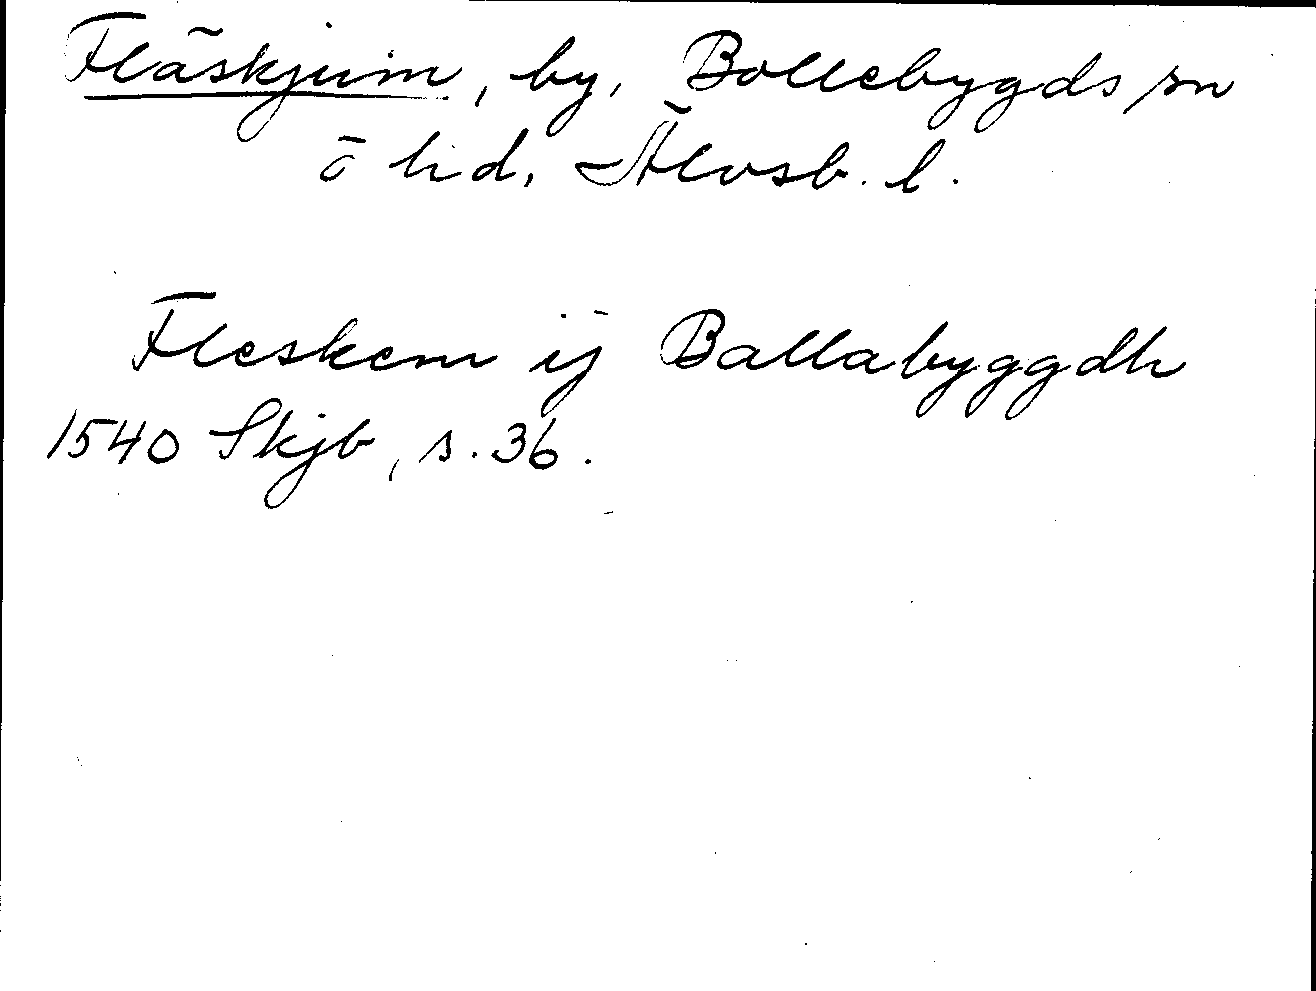 Fläskjum, by, Bollebygds sn
ö hd, Älvsb. l.
Fleskem ij Ballabyggdh
1540 Skjb, s. 36.